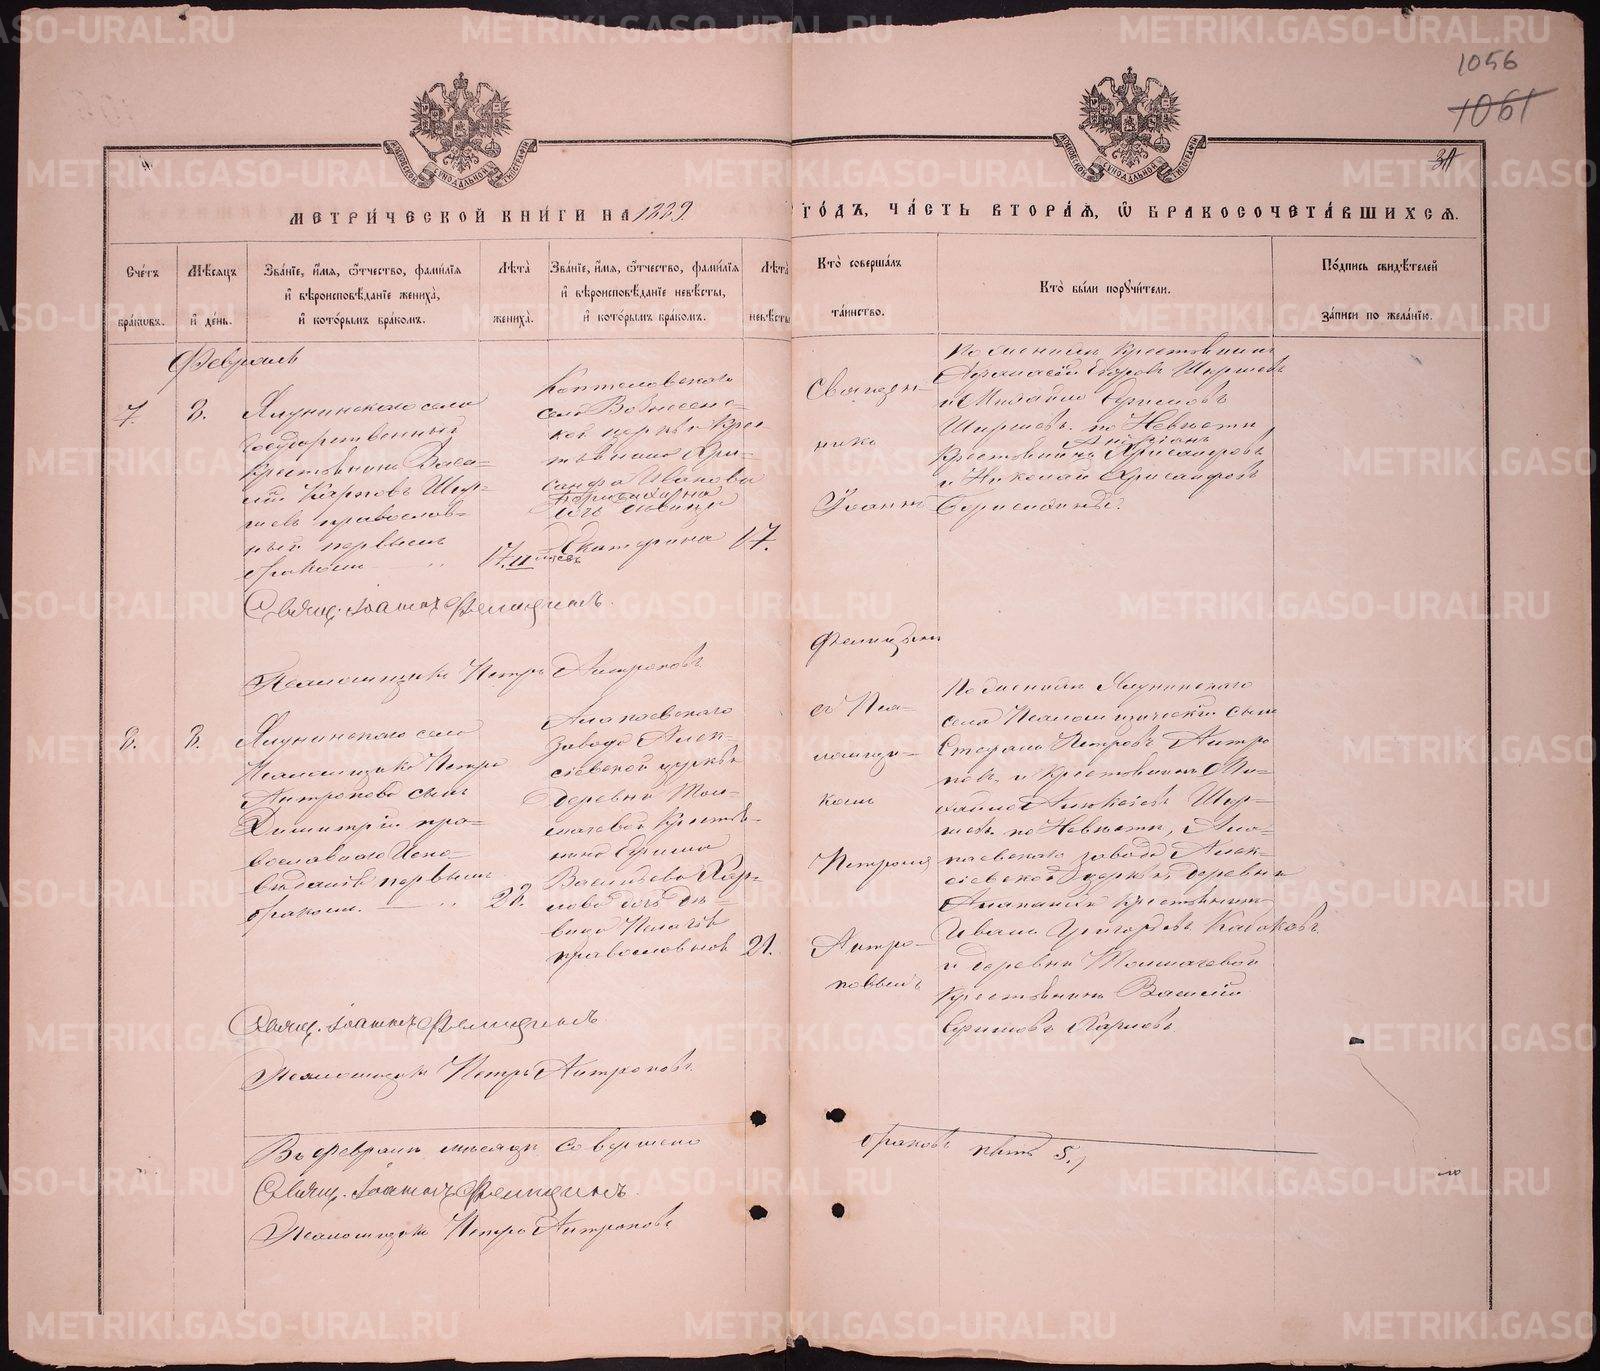 1056
1061
МОСКОВСКОЙ СѴНОДАЛЬНОЙ ТИПОГРАФІИ
МОСКОВСКОЙ СѴНОДАЛЬНОЙ ТИПОГРАФІИ
МЕТРИ́ЧЕСКОЙ КНИ́ГИ НА 1889
ГО́ДЪ, ЧА́СТЬ ВТОРА́Я, Ѡ БРАКОСОЧЕТА́ВШИХСЯ.
Сче́тъ бра́ковъ.
Мѣ́сяцъ и҆ де́нь.
Зва́нїе, и҆́мѧ, ѻ҆́тчество, фами́лїѧ и҆ вѣроисповѣ́данїе жениха̀, и҆ кото́рымъ бра́комъ.
Лѣта̀ жениха̀.
Зва́нїе, и҆́мѧ, ѻ҆́тчество, фами́лїѧ и҆ вѣроисповѣ́данїе невѣ́сты, и҆ кото́рымъ бра́комъ.
Лѣта̀ невѣ́сты
Кто̀ соверша́лъ та́инство.
Кто̀ бы́ли поручи́тели.
По́дпись свидѣ́телей за́писи по жела́нїю.
Февраль
7.
8.
Ялунинскаго села
государственный
крестьянинъ Васи-
лій Карповъ Шир-
шевъ православ-
ный первымъ
бракомъ
17
Коптеловскаго
села Вознесенс-
кой церкви крес-
тьянина Хри-
санфа Иванова
дочь девица
Екатерина
17.
Священ
никъ
Іоаннъ
По женихѣ крестьянинъ
Афанасій Егоровъ Ширшевъ
и Михаилъ
Ширшевъ. по Невѣсте
крестьянинъ Хрисанфовъ
и Николай Хрисанфовъ
Свящ. Іоаннъ Флицинъ
Псаломщикъ Петръ Антроповъ
8.
8.
Ялунинскаго села
Псаломщика Петра
Антропова сынъ
Димитрій пра-
вославнаго испо-
веданія первымъ
бракомъ.
Алапаевскаго
завода Алек-
сіевской церкви
деревни Тол-
мачевой крестья-
нина Ефима
Васильева Кар-
пова дочь де-
вица Пелагія
православной
21.
съ Пса-
ломщи-
комъ
Петромъ
Антро-
повымъ
По женихѣ Ялунинскаго
села Псаломщическій сынъ
Стефанъ Петровъ Антро
повъ и крестьянинъ Ми-
хаилъ Алексіевъ Шир-
шевъ по Невѣсте, Ала-
паевскаго завода Алек-
сіевской церкви деревни
крестьянинъ
Иванъ Григорьевъ Кабаковъ
и деревни Толмачевой
крестьянинъ Василій
Ефимовъ Карповъ
Свящ. Іоаннъ Флицинъ
Псаломщикъ Петръ Антроповъ
Въ феврале месяце совершено
браковъ пять 5.
Свящ. Іоаннъ Флицинъ
Псаломщикъ Петръ Антроповъ
METRIKI.GASO-URAL.RU